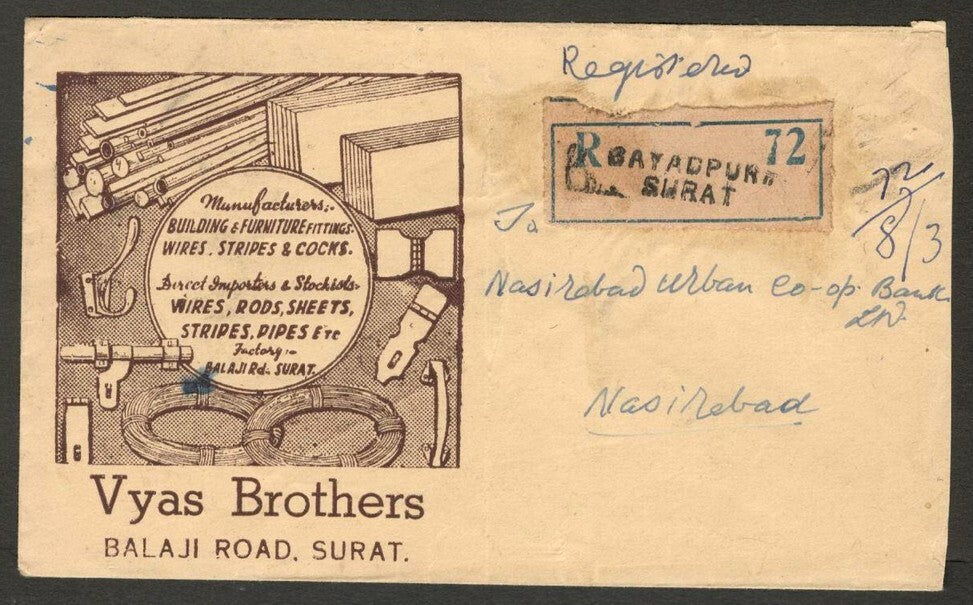 Registered
R 72
SAYADPURA
SURAT
72/8/3
To
Nasirabad Urban Co-op. Bank
Ltd.
Nasirabad
Manufacturers:-
BUILDING & FURNITURE FITTINGS.
WIRES, STRIPES & COCKS.
Direct Importers & Stockists-
WIRES, RODS, SHEETS,
STRIPES, PIPES ETC
Factory:-
BALAJI Rd. SURAT.
Vyas Brothers
BALAJI ROAD, SURAT.